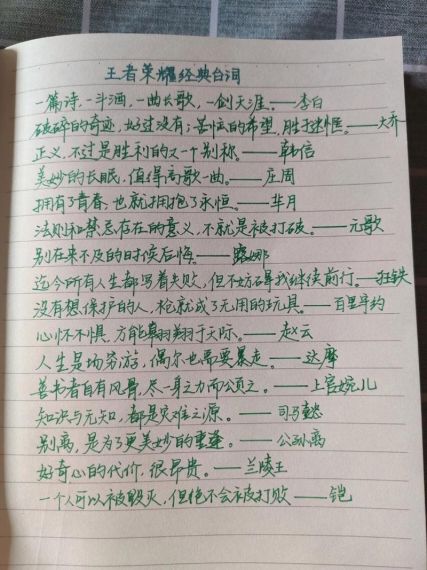 王者荣耀经典台词
一篇诗,一斗酒,一曲长歌,一剑天涯。——李白
破碎的奇迹,好过没有;苦涩的希望,胜于迷惘。——大乔
正义,不过是胜利的又一个别称。——韩信
美妙的长眠,值得高歌一曲。——庄周
拥有了青春,也就拥抱了永恒。——芈月
法则和禁忌存在的意义,不就是被打破。——元歌
别在来不及的时候后悔。——露娜
迄今所有人生都写着失败,但不妨碍我继续前行。——狂铁
没有想保护的人,枪就成了无用的玩具。——百里守约
心怀不惧,方能翱翔于天际。——赵云
人生是场穷游,偶尔也需要暴走。——达摩
善书者自有风骨,尽一身之力而颂之。——上官婉儿
知识与无知,都是灾难之源。——司马懿
别离,是为了更美妙的重逢。——公孙离
好奇心的代价,很昂贵。——兰陵王
一个人可以被毁灭,但绝不会被打败——铠